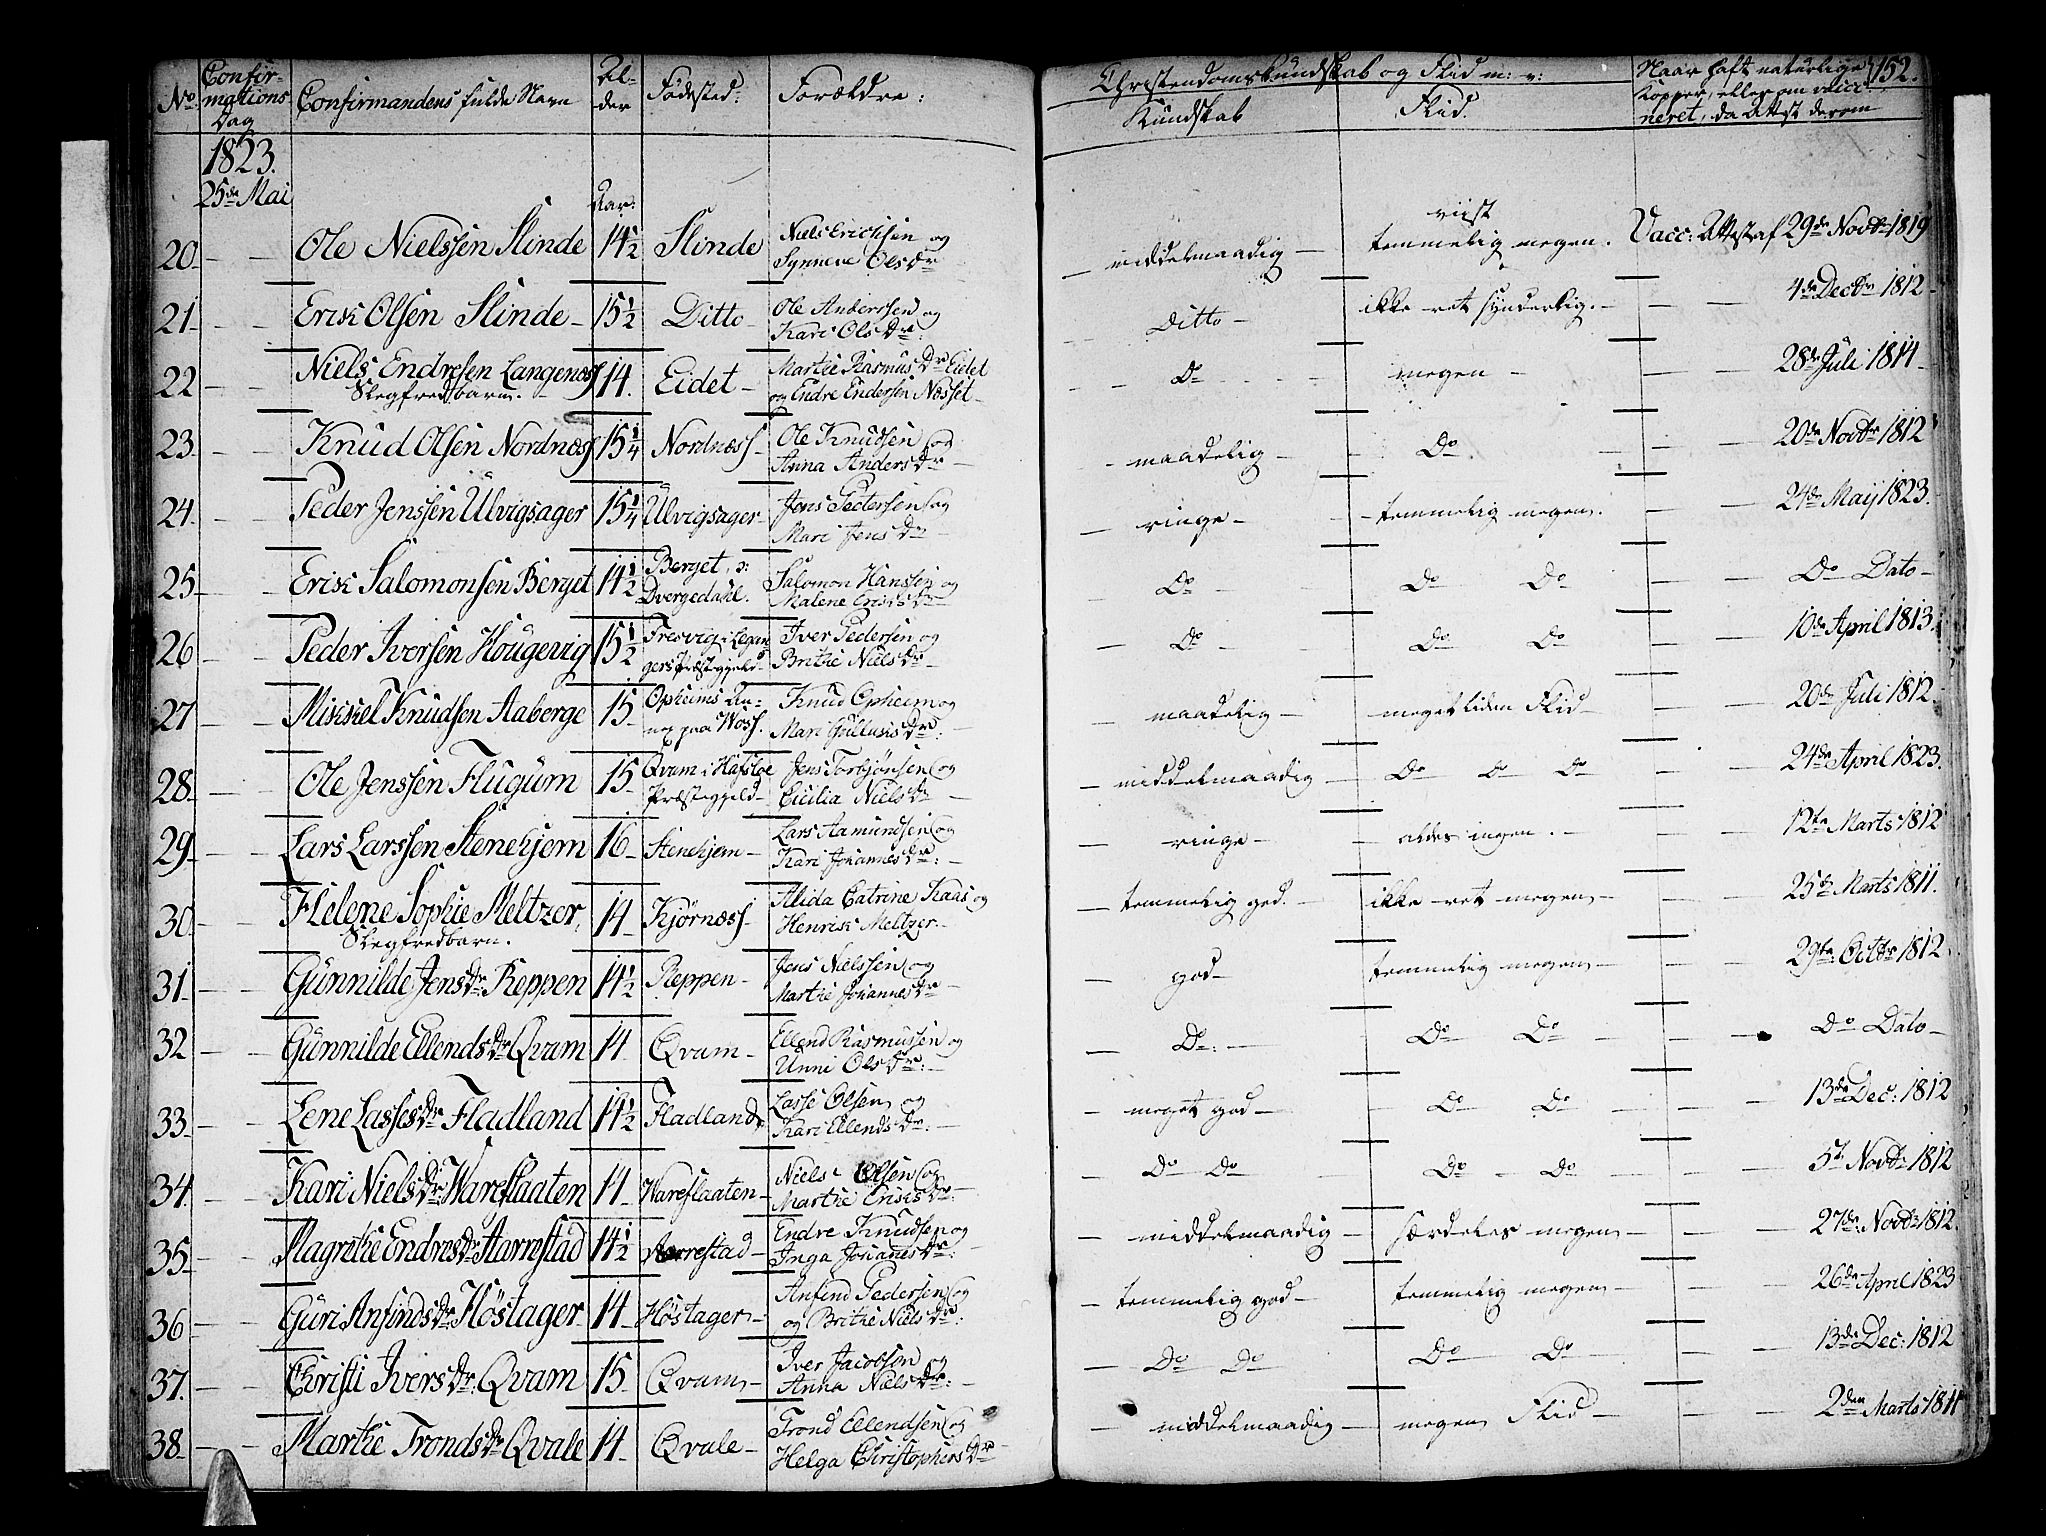 No. Confirmations Dag Confirmandens fulde Navn Alder Fødested: Forældre: Christendomskundskab og Flid m: v: Kundskab Flid. Naar haft naturlige Kopper, eller om vaccineret, da Attest derom 152.
1823.
25de Mai Aar:
20 Ole Nielssen Slinde 14½ Slinde Niels Erichsen og Synneve Olsdr middelmaadig viist temmelig megen. Vacc: Attest af 29de Novbr 1819
21 Erik Olsen Slinde 15½ Ditto Ole Anderssen og Kari Olsdr: Ditto ikke ret synderlig. 4de Decbr 1812
22 Niels Endresen Langenæs Slegfredbarn. 14. Eidet Marthe Rasmus Dr Eidet og Endre Endersen Næsset Do megen 28de Juli 1814
23. Knud Olsen Nordnæs 15¼ Nordnæss Ole Knudsen og Anna Andersdr maadelig Do. 20de Novbr 1812
24. Peder Jenssen Ulvigsager 15¼ Ulvigsager Jens Pedersen og Mari Jensdr ringe temmelig megen. 24de Maij 1823.
25 Erik Salomonsen Berget 14½ Berget, o: Dvergedahl. Salomon Hanssen og Malene Eriksdr Do Do Do Do Dato
26 Peder Iversen Hougevig 15½ Fresvig i Leganger's Præstegjeld Iver Pedersen og Brithe Nielsdr Do Do Do 10de April 1813.
27 Mikkel Knudsen Aaberge 15 Opheims Annex paa Woss. Knud Opheim og Mari Gulleiksdr: maadelig meget liden Flid 20de Juli 1812.
28. Ole Jenssen Flugum 15 Qvam i Hafsloe Præstegjeld Jens Torbjönsen og Cicilia Nielsdr middelmaadig Do Do Do 24de April 1823.
29. Lars Larssen Stenehjem 16 Stenehjem Lars Aamundsen og Kari Johannesdr: ringe aldes ingen. 12te Marts 1812
30. Helene Sophie Meltzer, Slegfredbarn. 14 Kjörnæss Alida Catrine Kaas og Henrik Meltzer. temmelig god. ikke ret megen 25de Marts 1811.
31. Gunnilde Jensdr: Reppen 14½ Reppen Jens Nielssen og Marthe Johannesdr god temmelig megen 29te Octbr 1812.
32 Gunnilde Ellendsdr Qvam 14 Qvam Ellend Rasmussen og Unni Olsdr: Do: Do Do Do Dato
33. Lene Lassesdr Fladland 14½ Fladland Lasse Olsen og Kari Ellendsdr: meget god Do Do 13de Dec: 1812
34. Kari Nielsdr: Wareflaaten 14 Wareflaaten Niels Olsen og Marthe Eriksdr: Do Do Do Do 5te Novbr 1812
35. Magrethe Endresdr Aarrestad 14½ Aarrestad Endre Knudsen og Inga Johanesdr: middelmaadig særdeles megen 27de Novbr 1812.
36 Guri Anfindsdr Höstager 14 Höstager Anfind Pedersen og og Brithe Nielsdr: temmelig god temmelig megen 26de April 1823
37. Christi Iversdr: Qvam 15 Qvam Iver Jacobsen og Anna Nielsdr: Do Do Do Do 13de Dec: 1812
38. Marthe Trondsdr Qvale 14 Qvale Trond Ellendsen og Helga Christophersdr middelmaadig megen Flid 2den Marts 1811